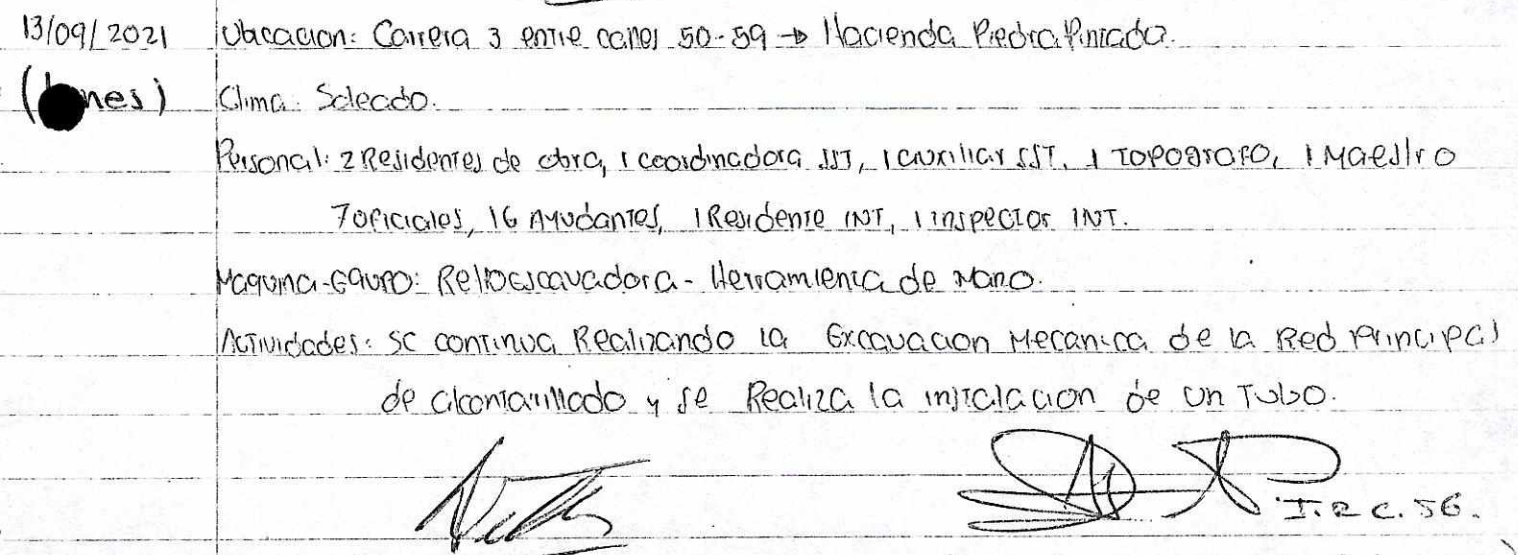 13/09/2021 Ubicacion: Carrera 3 entre calles 50-59 → Hacienda Piedra Pintada.
(nes) Clima: Soleado.
Personal: 2 Residentes de obra, 1 coordinadora SST, 1 auxiliar SST, 1 Topografo, 1 Maestro
7 oficiales, 16 Ayudantes, 1 Residente INT, 1 inspector INT.
Maquina-Equipo: Retroescavadora - Herramienta de Mano.
Actividades: se continua Realizando la Excavacion Mecanica de la Red Principal
de alcantarillado y se Realiza la instalacion de un Tubo.
I.R.C. SG.